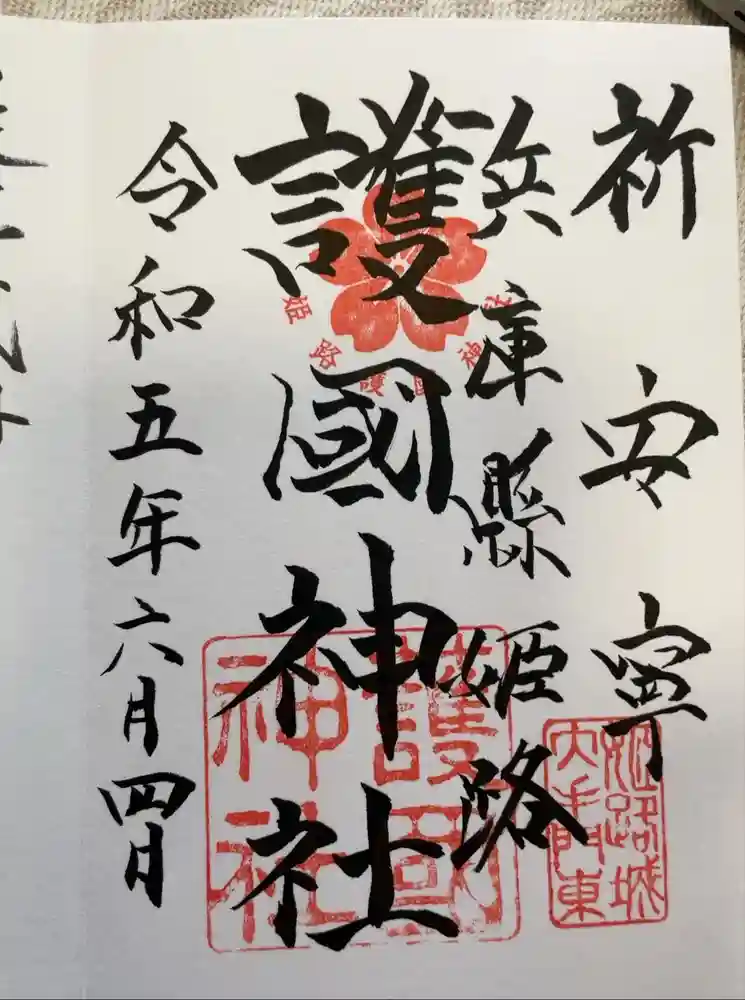 祈安寧
兵庫縣姫路
護國神社
令和五年六月四日
姫路護國神社
護國神社
姫路城大手門東